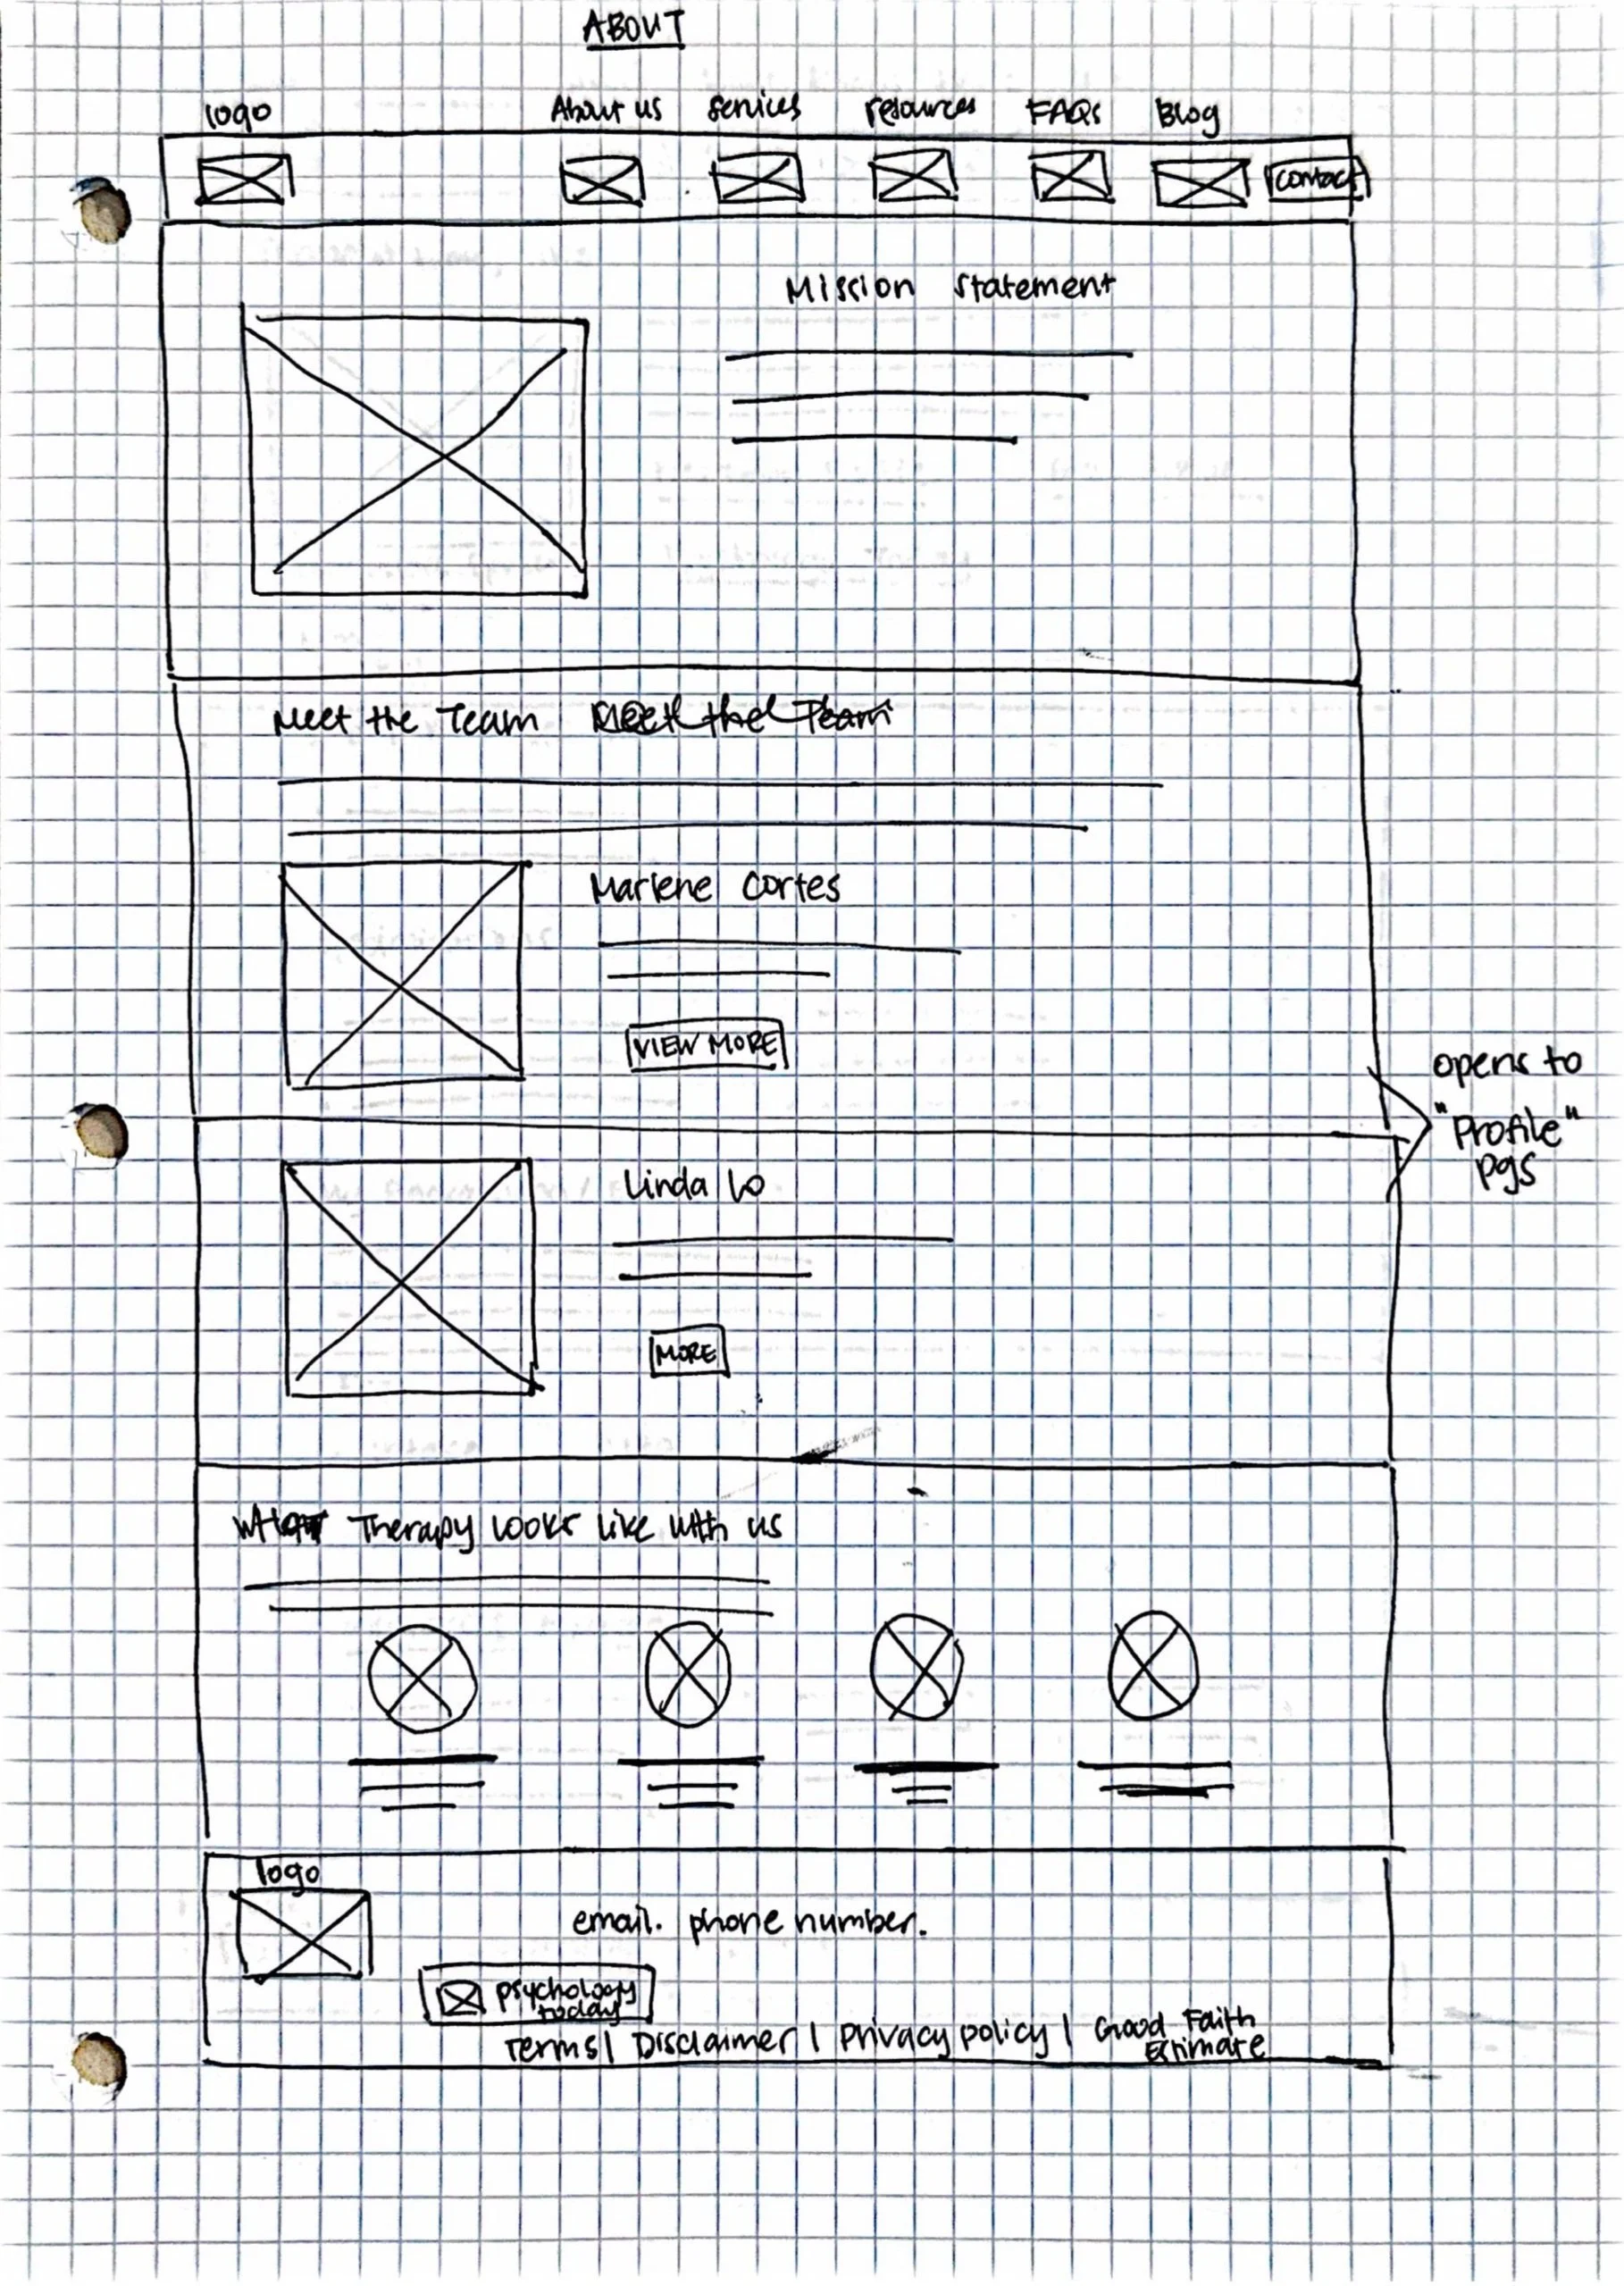 ABOUT
logo About us services resources FAQs Blog
contact
Mission Statement
Meet the Team Meet the Team
Marlene Cortes
VIEW MORE
opens to
"Profile"
pgs
Linda Lo
MORE
What Therapy looks like with us
logo
email. phone number.
psychology
today
Terms | Disclaimer | Privacy policy | Good Faith
Estimate